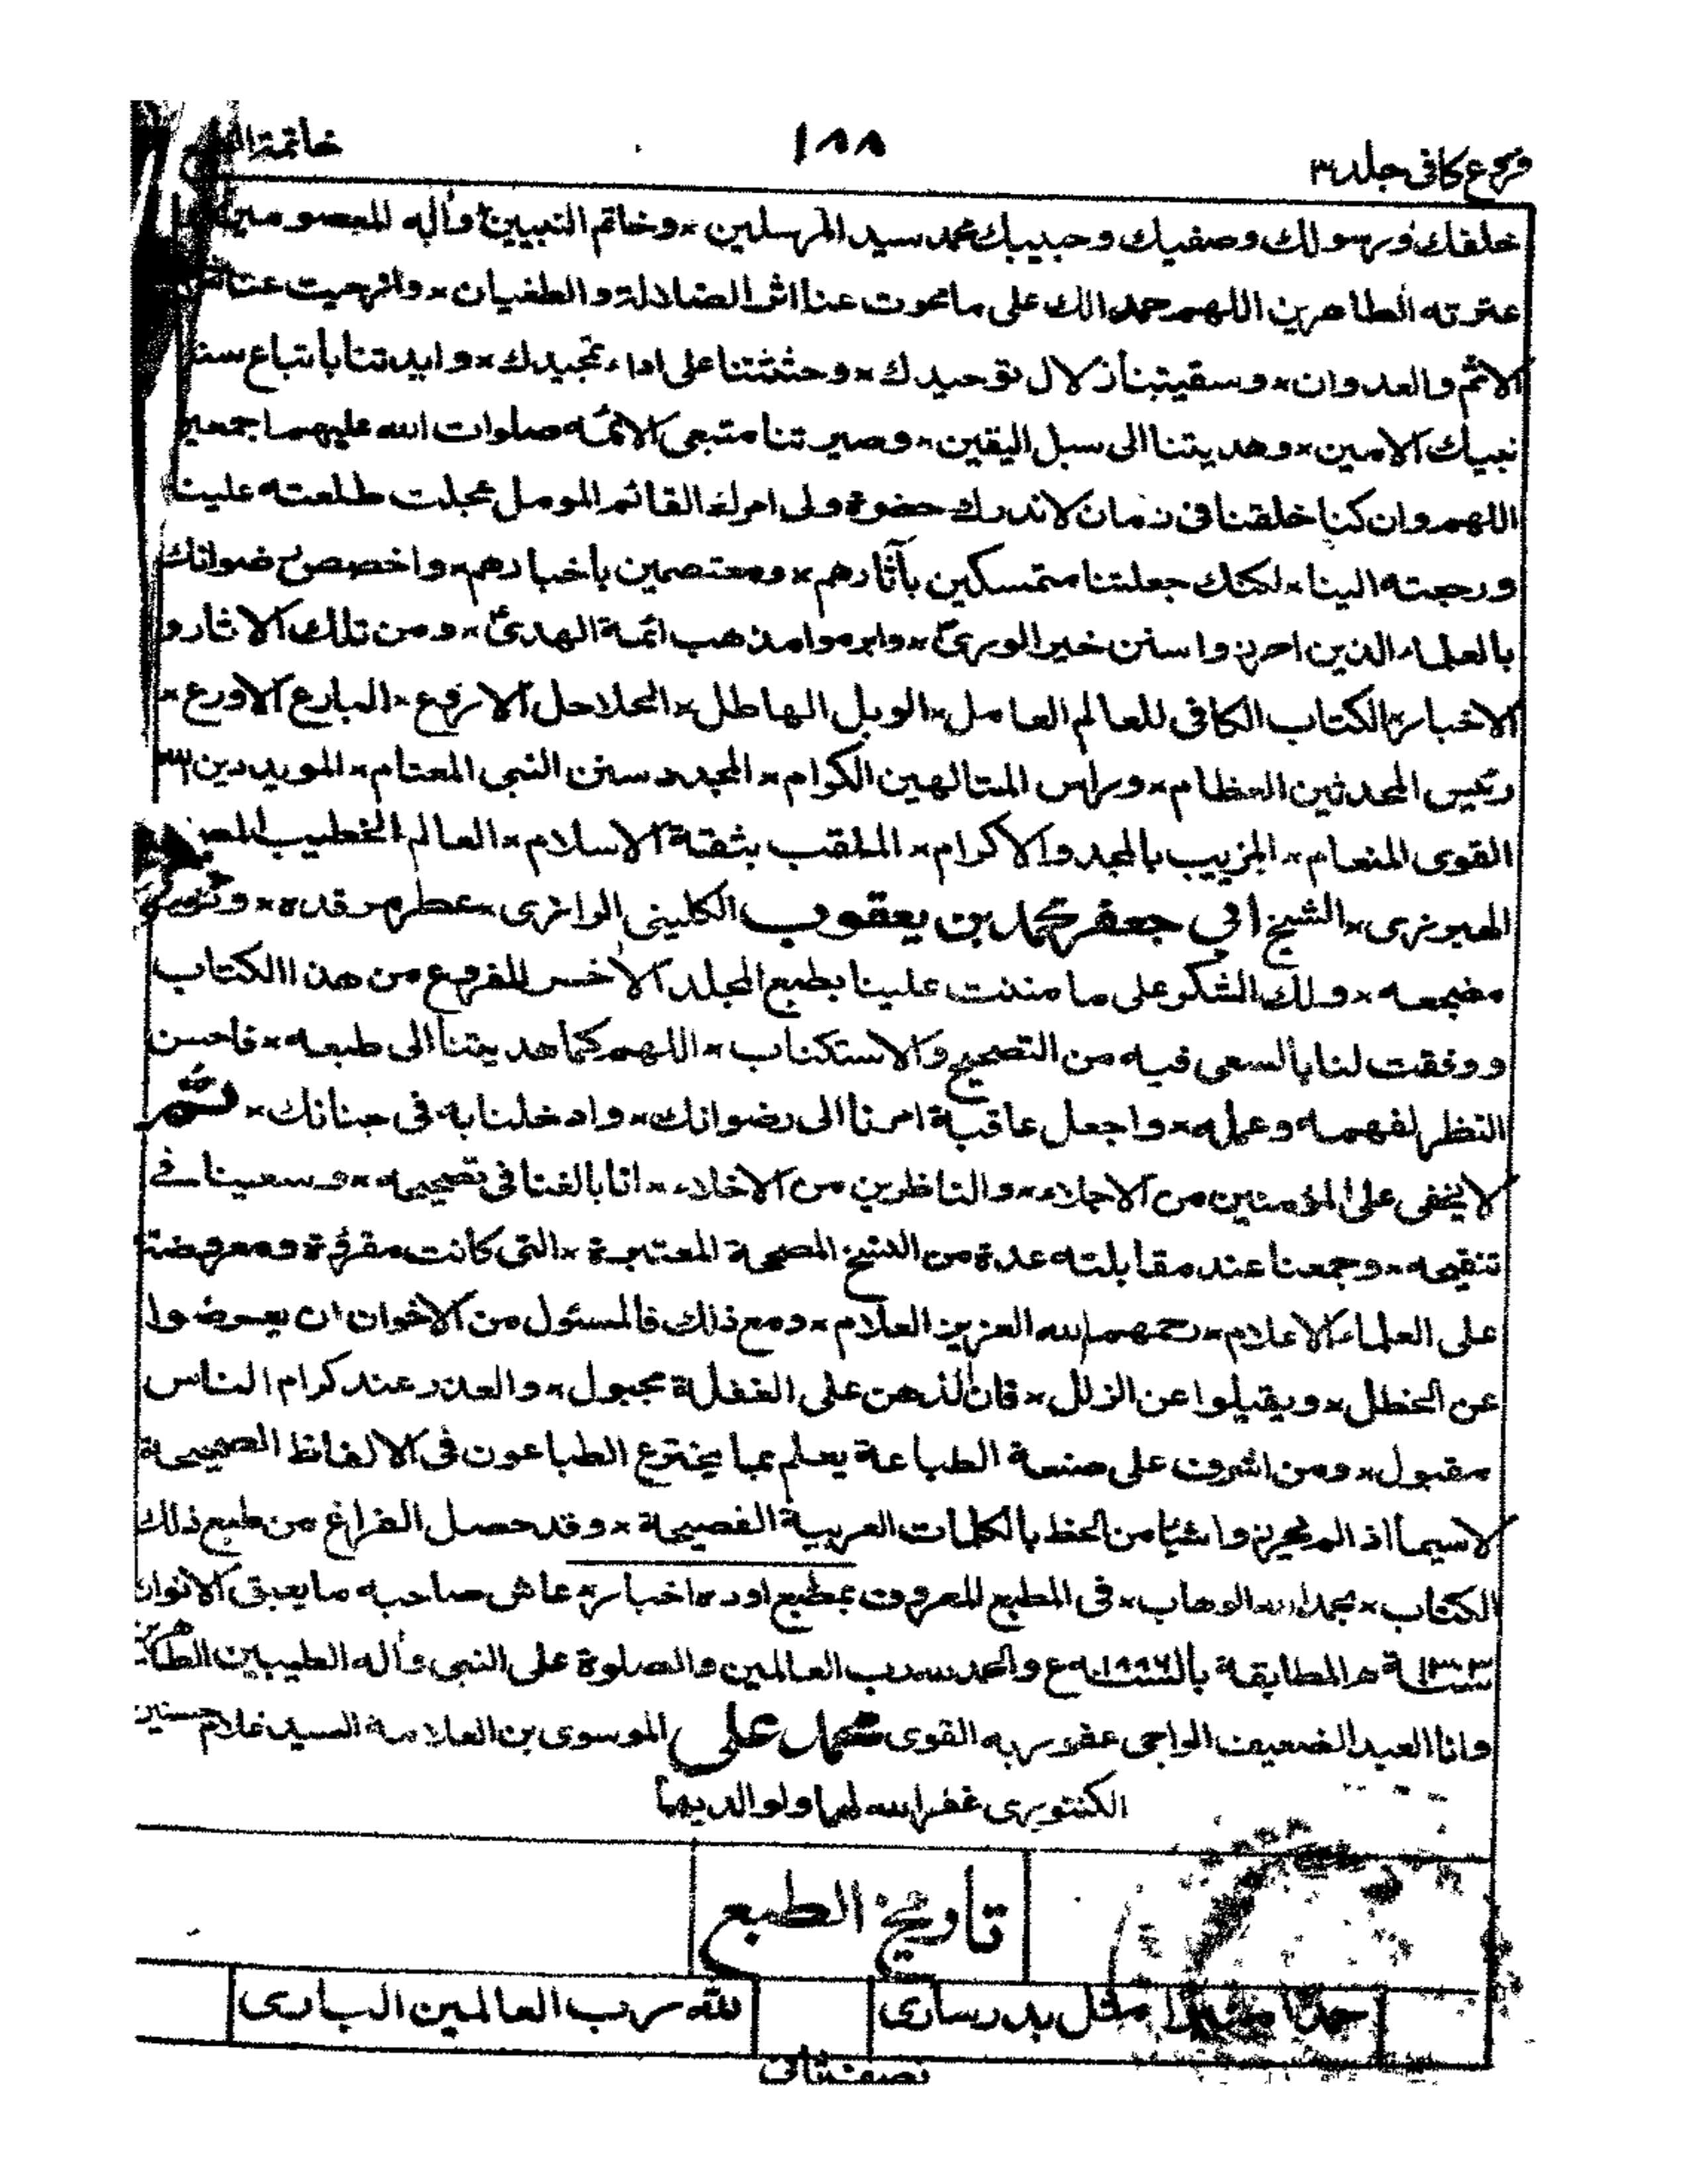 فروع كافى جلد٣
١٨٨
خاتمة
خلفك ورسولك وصفيك وحبيبك محمد سيد المرسلين × وخاتم النبيين وأله المعصومين
عترته الطاهرين اللهم حمدا لك على ما محوت عنا اثر الضلالة والطغيان × وازحيت عنا
الاثم والعدوان × وسقيتنا زلال توحيدك × وحثثتنا على اداء تمجيدك × وايدتنا باتباع سنة
نبيك الامين × وهديتنا الى سبل اليقين × وصيرتنا متبعى الائمه صلوات الله عليهم اجمعين
اللهم وان كنا خلقنا فى زمان لا ندرك حضرة ولى امرك القائم المومل عجلت طلعته علينا
ورجعته الينا × لكنك جعلتنا متمسكين بآثارهم × ومعتصمين باخبارهم × واخصص رضوانك
بالعلماء الذين احرزوا سنن خير الورى × وابرموا مذهب ائمة الهدى × ومن تلك الاثار و
الاخبار × الكتاب الكافى للعالم العامل × الوبل الهاطل × الحلاحل الاروع × البارع الاورع ×
رئيس المحدثين العظام × وراس المتالهين الكرام × المجدد سنن النبى المعتام × المويد دين
القوى المنعام × المزيب بالمجد والاكرام × الملقب بثقة الاسلام × العالم الخطيب
الهبرزى × الشيخ ابي جعفر محمد بن يعقوب الكلينى الرازى × عطر مرقده ×
مضجعه × ولك الشكر على ما مننت علينا بطبع المجلد الأخر للفروع من هذا الكتاب
ووفقت لنا بالسعى فيه من التصحيح والاستكتاب × اللهم كما هديتنا الى طبعه × فاحسن
النظر لفهمه وعمله × واجعل عاقبة امرنا الى رضوانك × وادخلنا به فى جنانك × ثم
لا يخفى على المؤمنين من الاجلاء × والناظرين من الاخلاء × انا بالغنا فى تصحيحه × وسعينا فے
تنقيحه × وجمعنا عند مقابلته عدة من النسخ المصححة المعتبرة × التى كانت مقروة ومعروضة
على العلماء الاعلام × رحمهم الله العزيز العلام × ومع ذلك فالمسئول من الاخوان ان يعرضوا
عن الخطل × ويقيلوا عن الزلل × فان الذهن على الغفلة مجبول × والعذر عند كرام الناس
مقبول × ومن اشرف على صنعة الطباعة يعلم بما يخترع الطباعون فى الالفاظ الصحيحة
لاسيما اذ الم يحرزوا شيئا من الحظ بالكلمات العربية الفصيحة × وقد حصل الفراغ من طبع ذلك
الكتاب × بحمد الله الوهاب × فى المطبع المعروف بمطبع اوده اخبار × عاش صاحبه ما يعبق الانوار
ه المطابقة ع والحمد لله رب العالمين والصلوة على النبى وأله الطيبين الطاهرين
وانا العبد الضعيف الراجى عفو ربه القوى محمد على الموسوى بن العلامة السيد غلام حسنين
الكنتورى غفر الله لهما ولوالديهما
تاريخ الطبع
حمدًا مثل بدر سارى
لله رب العالمين البارى
نصف ثانى